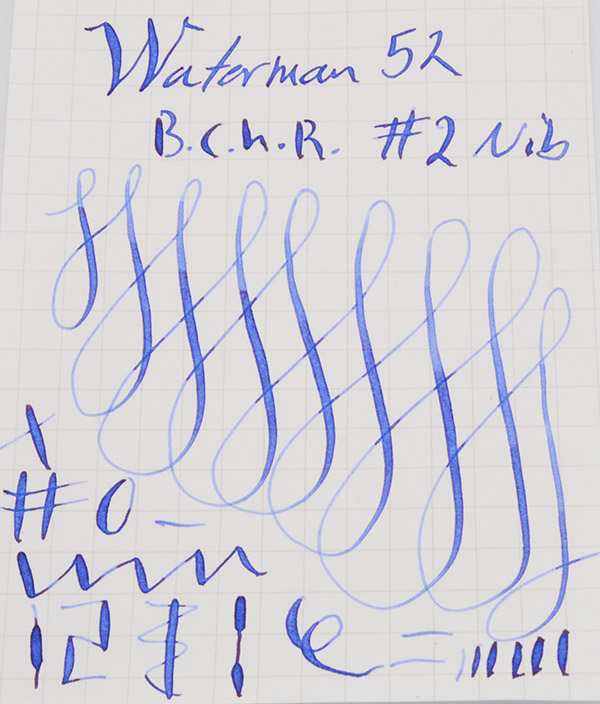 Waterman 52
B.C.h.R. #2 Nib
# 0 -